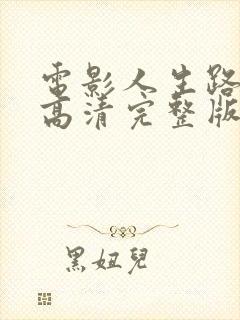 電影人生路
高清完整版
黑妞兒